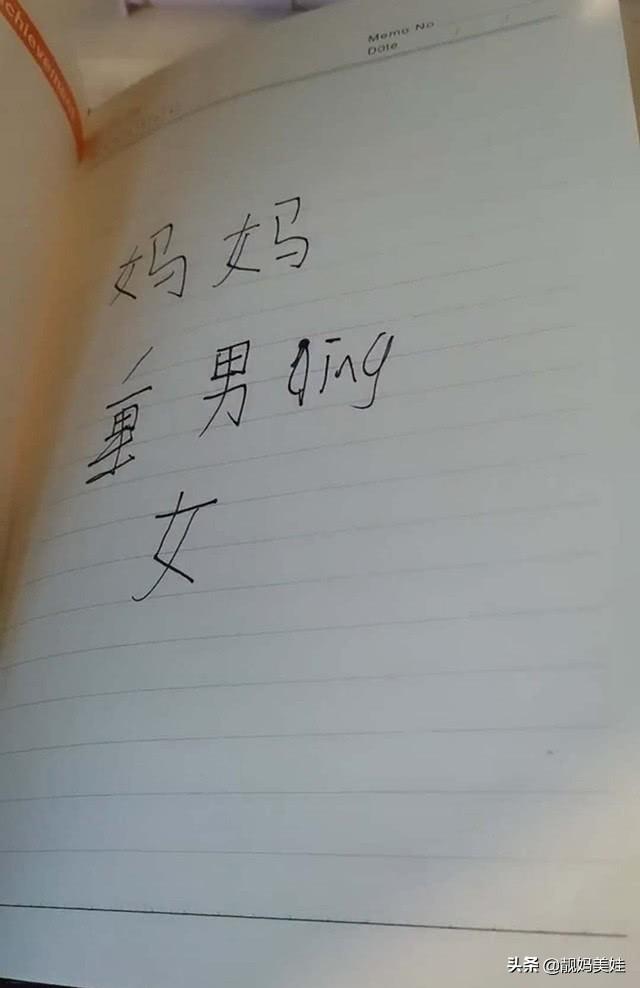 chievement
Memo No
Date
妈妈
重男qing
女
头条 @靓妈美娃